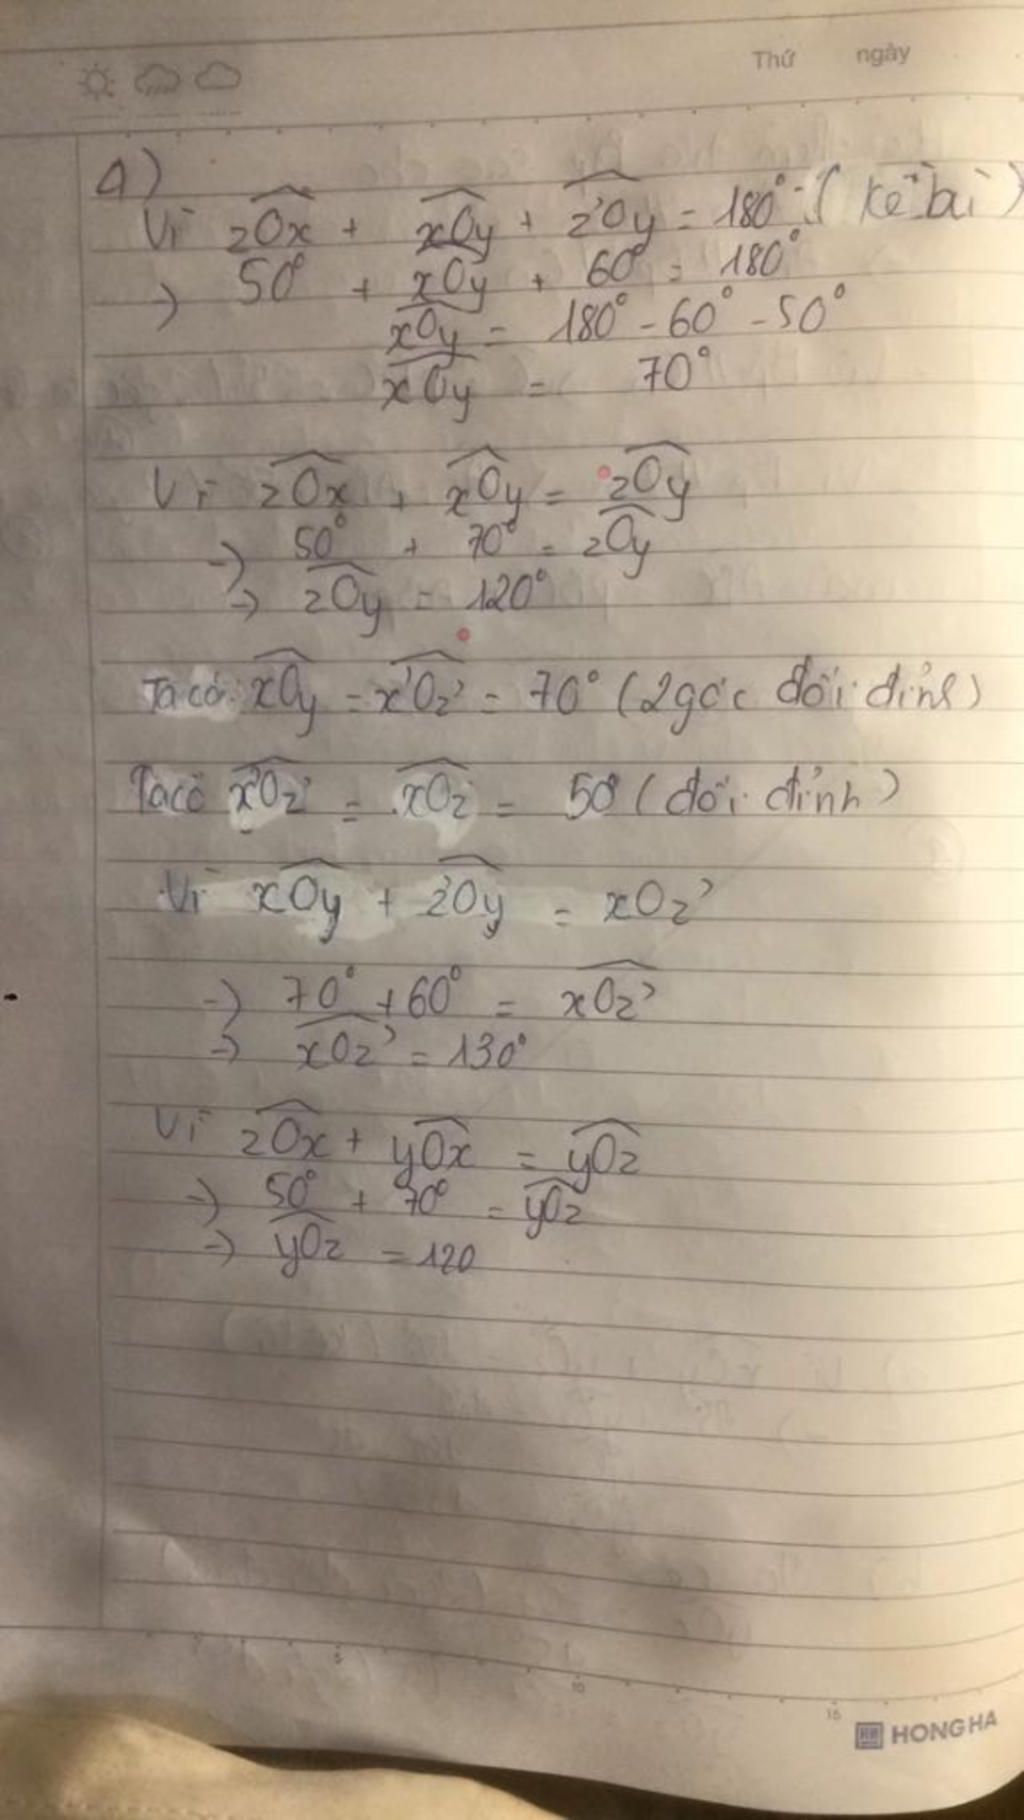 Thứ ngày
4)
Vì zOx + xOy + z'Oy = 180° (kề bù)
→ 50° + xOy + 60° = 180°
xOy = 180° - 60° - 50°
xOy = 70°
Vì zOx + xOy = zOy
→ 50° + 70° = zOy
→ zOy = 120°
Ta có: xOy = x'Oz' = 70° (2 góc đối đỉnh)
Ta có x'Oz' = xOz = 50° (đối đỉnh)
Vì xOy + z'Oy = xOz'
→ 70° + 60° = xOz'
→ xOz' = 130°
Vì zOx + yOx = yOz
→ 50° + 70° = yOz
→ yOz = 120
5 10 15
HONG HA